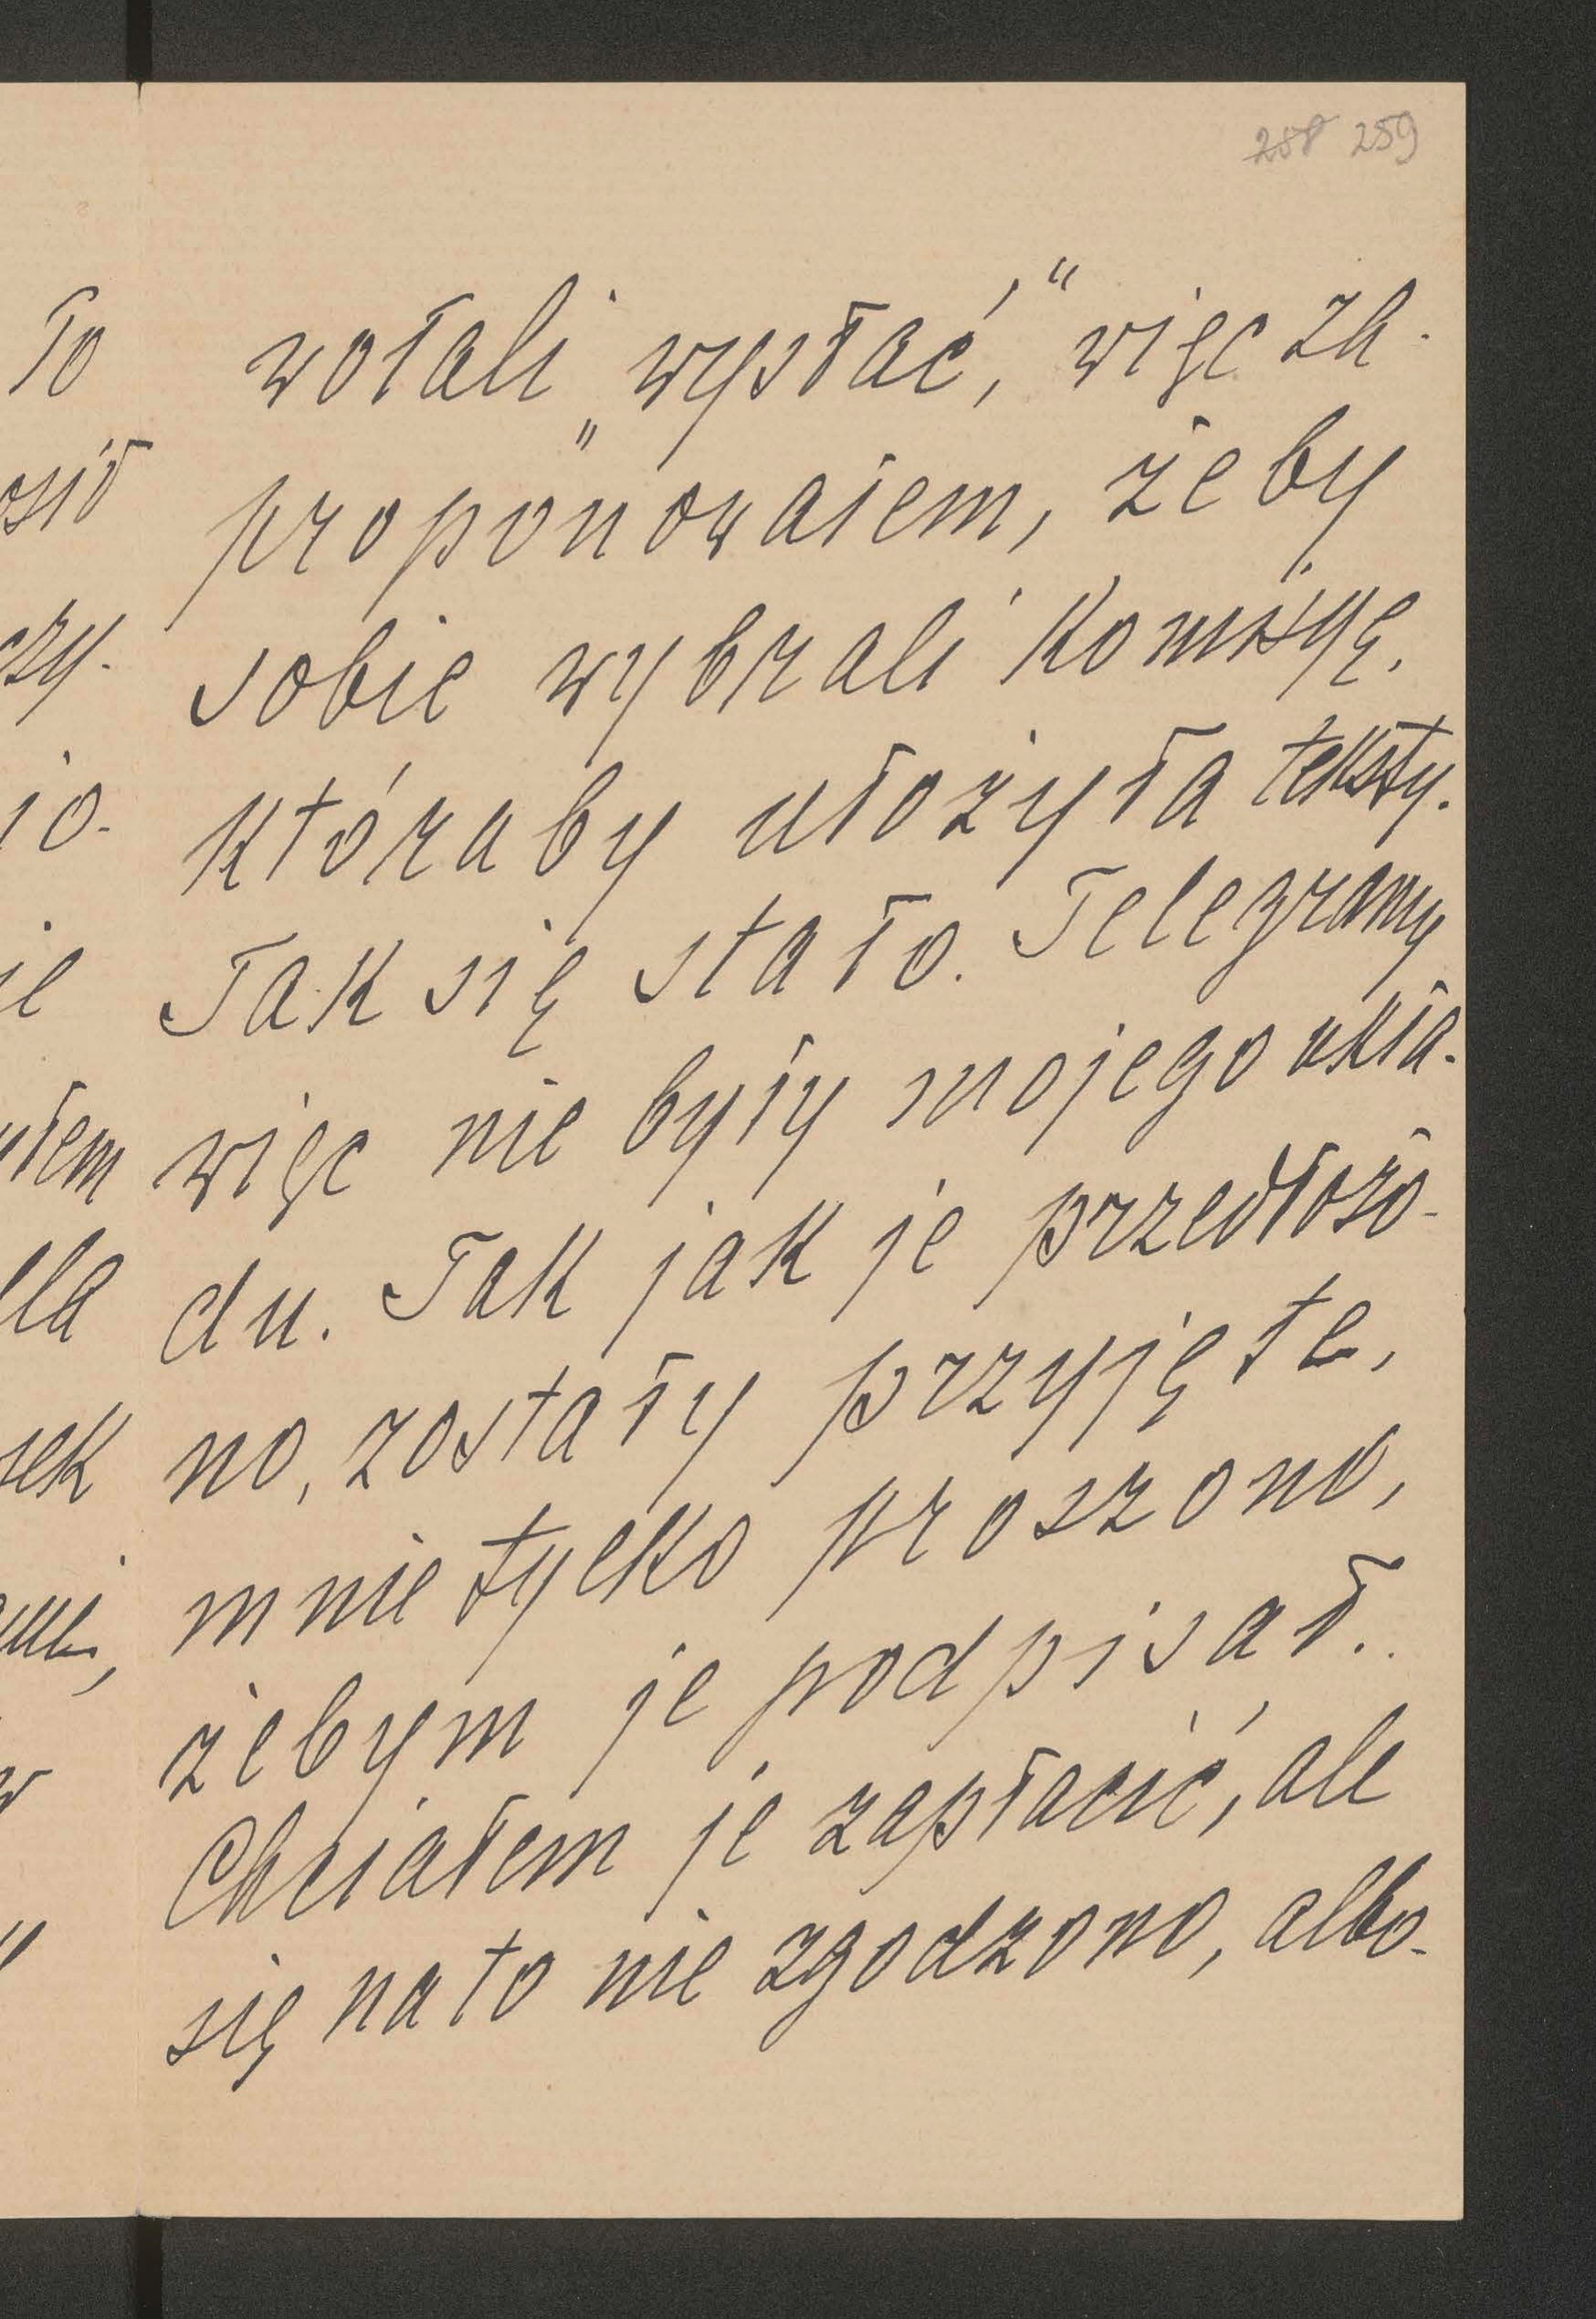 258 259
wołali „wysłać," więc za-
proponowałem, żeby
sobie wybrali Komisyę,
któraby ułożyła teksty.
Tak się stało. Telegramy
więc nie były mojego ukła-
du. Tak jak je przedłożo-
no, zostały przyjęte,
mnie tylko proszono,
żebym je podpisał.
Chciałem je zapłacić, ale
się na to nie zgodzono, albo-